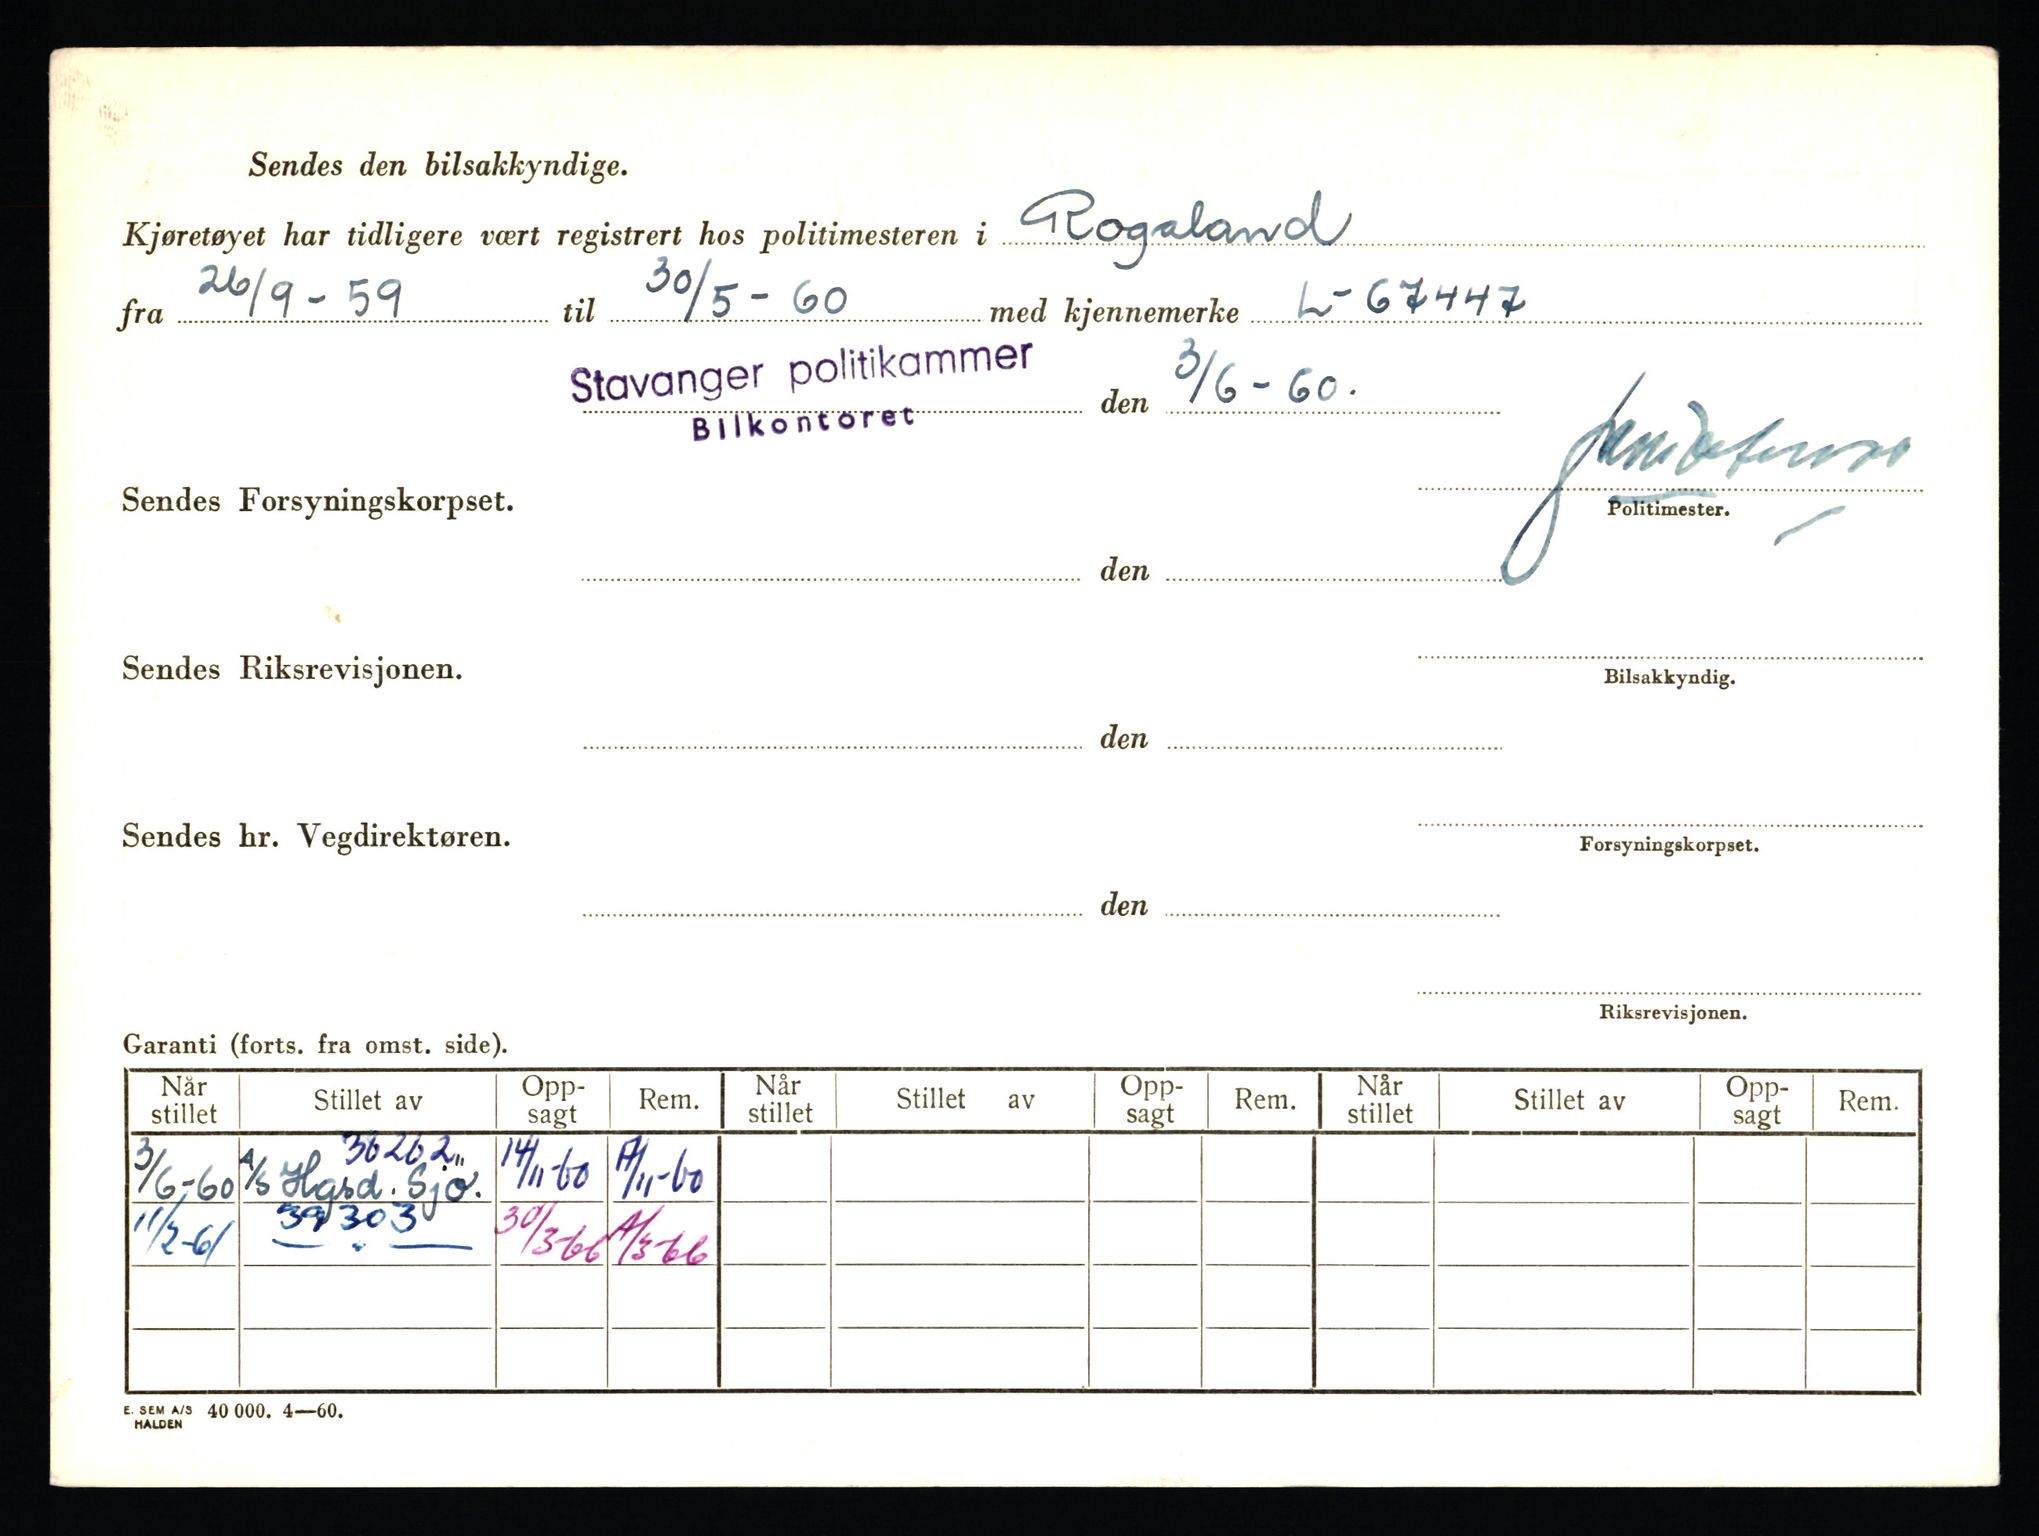 Sendes den bilsakkyndige.
Kjøretøyet har tidligere vært registrert hos politimesteren i Rogaland
fra 26/9 - 59 til 30/5 - 60 med kjennemerke L- 67447
Stavanger politikammer den 3/6 - 60.
Bilkontoret
Sendes Forsyningskorpset.
Politimester.
den
Sendes Riksrevisjonen.
Bilsakkyndig.
den
Sendes hr. Vegdirektøren.
Forsyningskorpset.
den
Riksrevisjonen.
Garanti (forts. fra omst. side).
Når stillet Stillet av Opp-sagt Rem. Når stillet Stillet av Opp-sagt Rem. Når stillet Stillet av Opp-sagt Rem.
36262
3/6-60 A/S Hgsd. Sjø. 14/11-60 A/11-60
11/2-61 39303 30/3-66 A/3-66
E. SEM A/S HALDEN 40 000. 4—60.